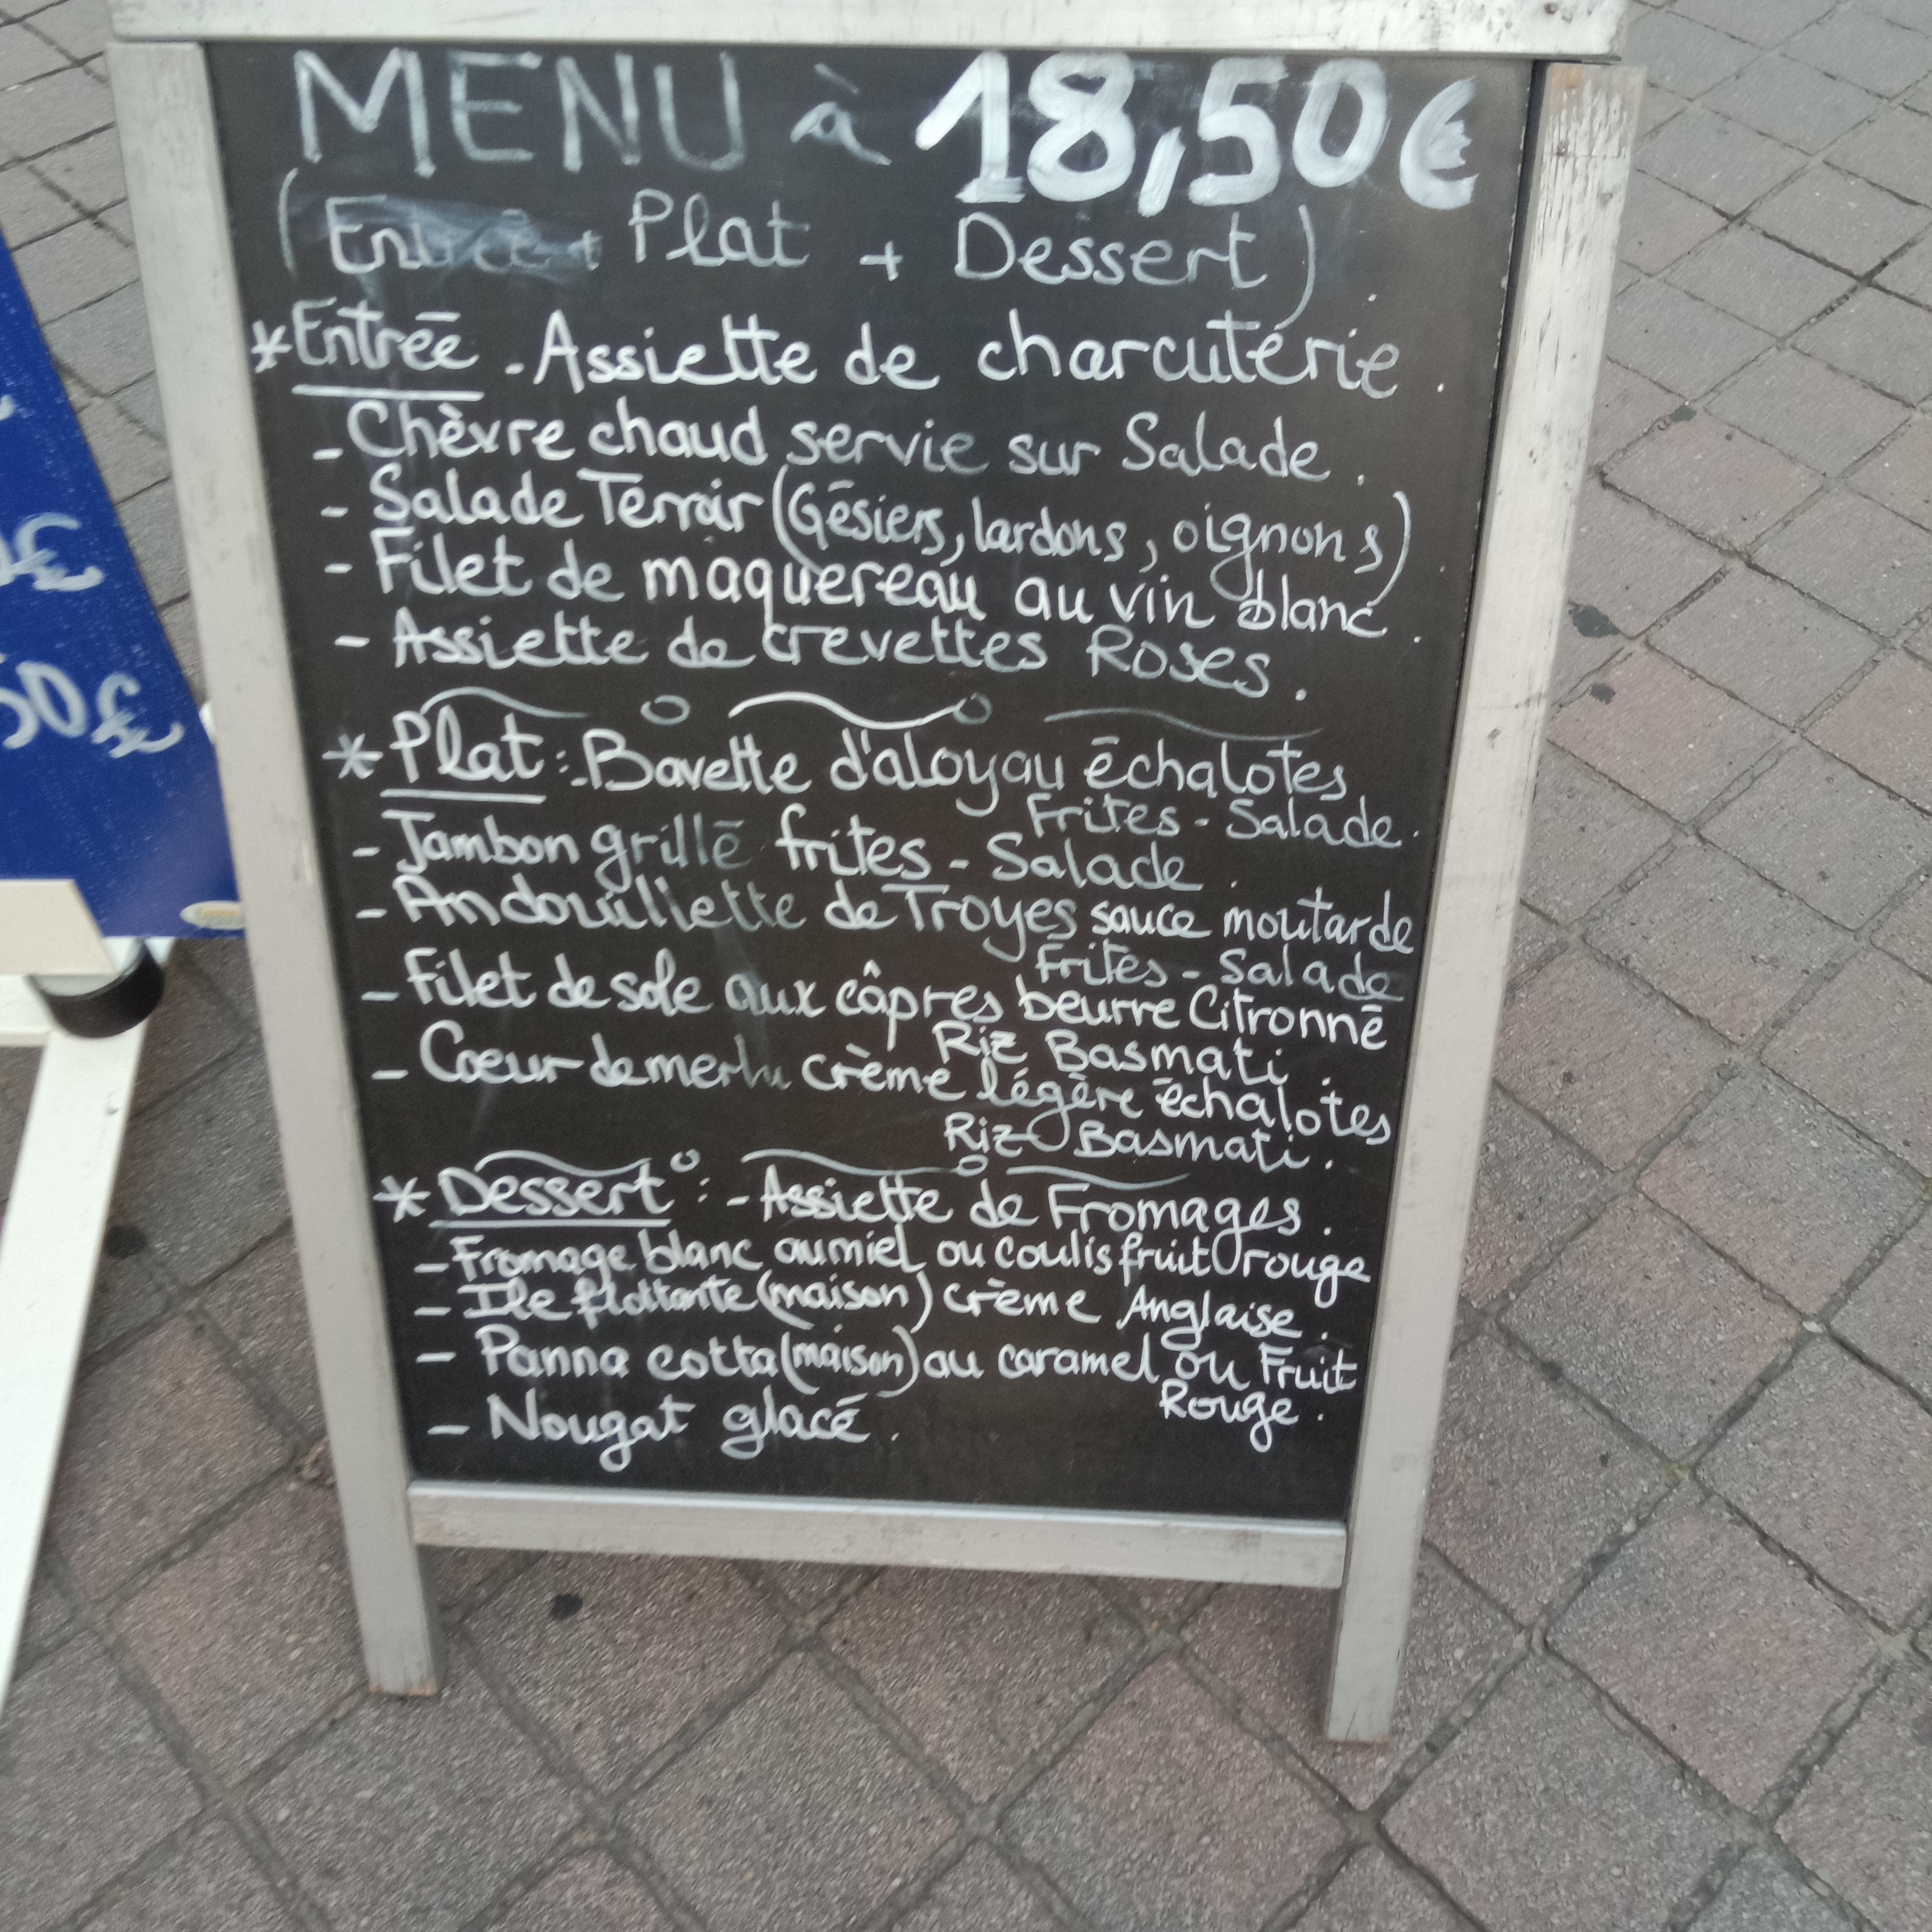 MENU à 18,50€
(Entrée + Plat + Dessert)
*Entrée - Assiette de charcuterie.
- Chèvre chaud servie sur Salade.
- Salade Terroir (Gésiers, lardons, oignons)
- Filet de maquereau au vin blanc.
- Assiette de crevettes Roses.
* Plat : - Bavette d'aloyau échalotes
Frites - Salade.
- Jambon grillé frites - Salade.
- Andouillette de Troyes sauce moutarde
Frites - Salade
- Filet de sole aux câpres beurre Citronné
Riz Basmati.
- Coeur de merlu crème légère échalotes
Riz Basmati.
* Dessert : - Assiette de Fromages.
- Fromage blanc au miel ou coulis fruit rouge
- Ile flottante (maison) crème Anglaise.
- Panna cotta (maison) au caramel ou Fruit
Rouge.
- Nougat glacé.
50€